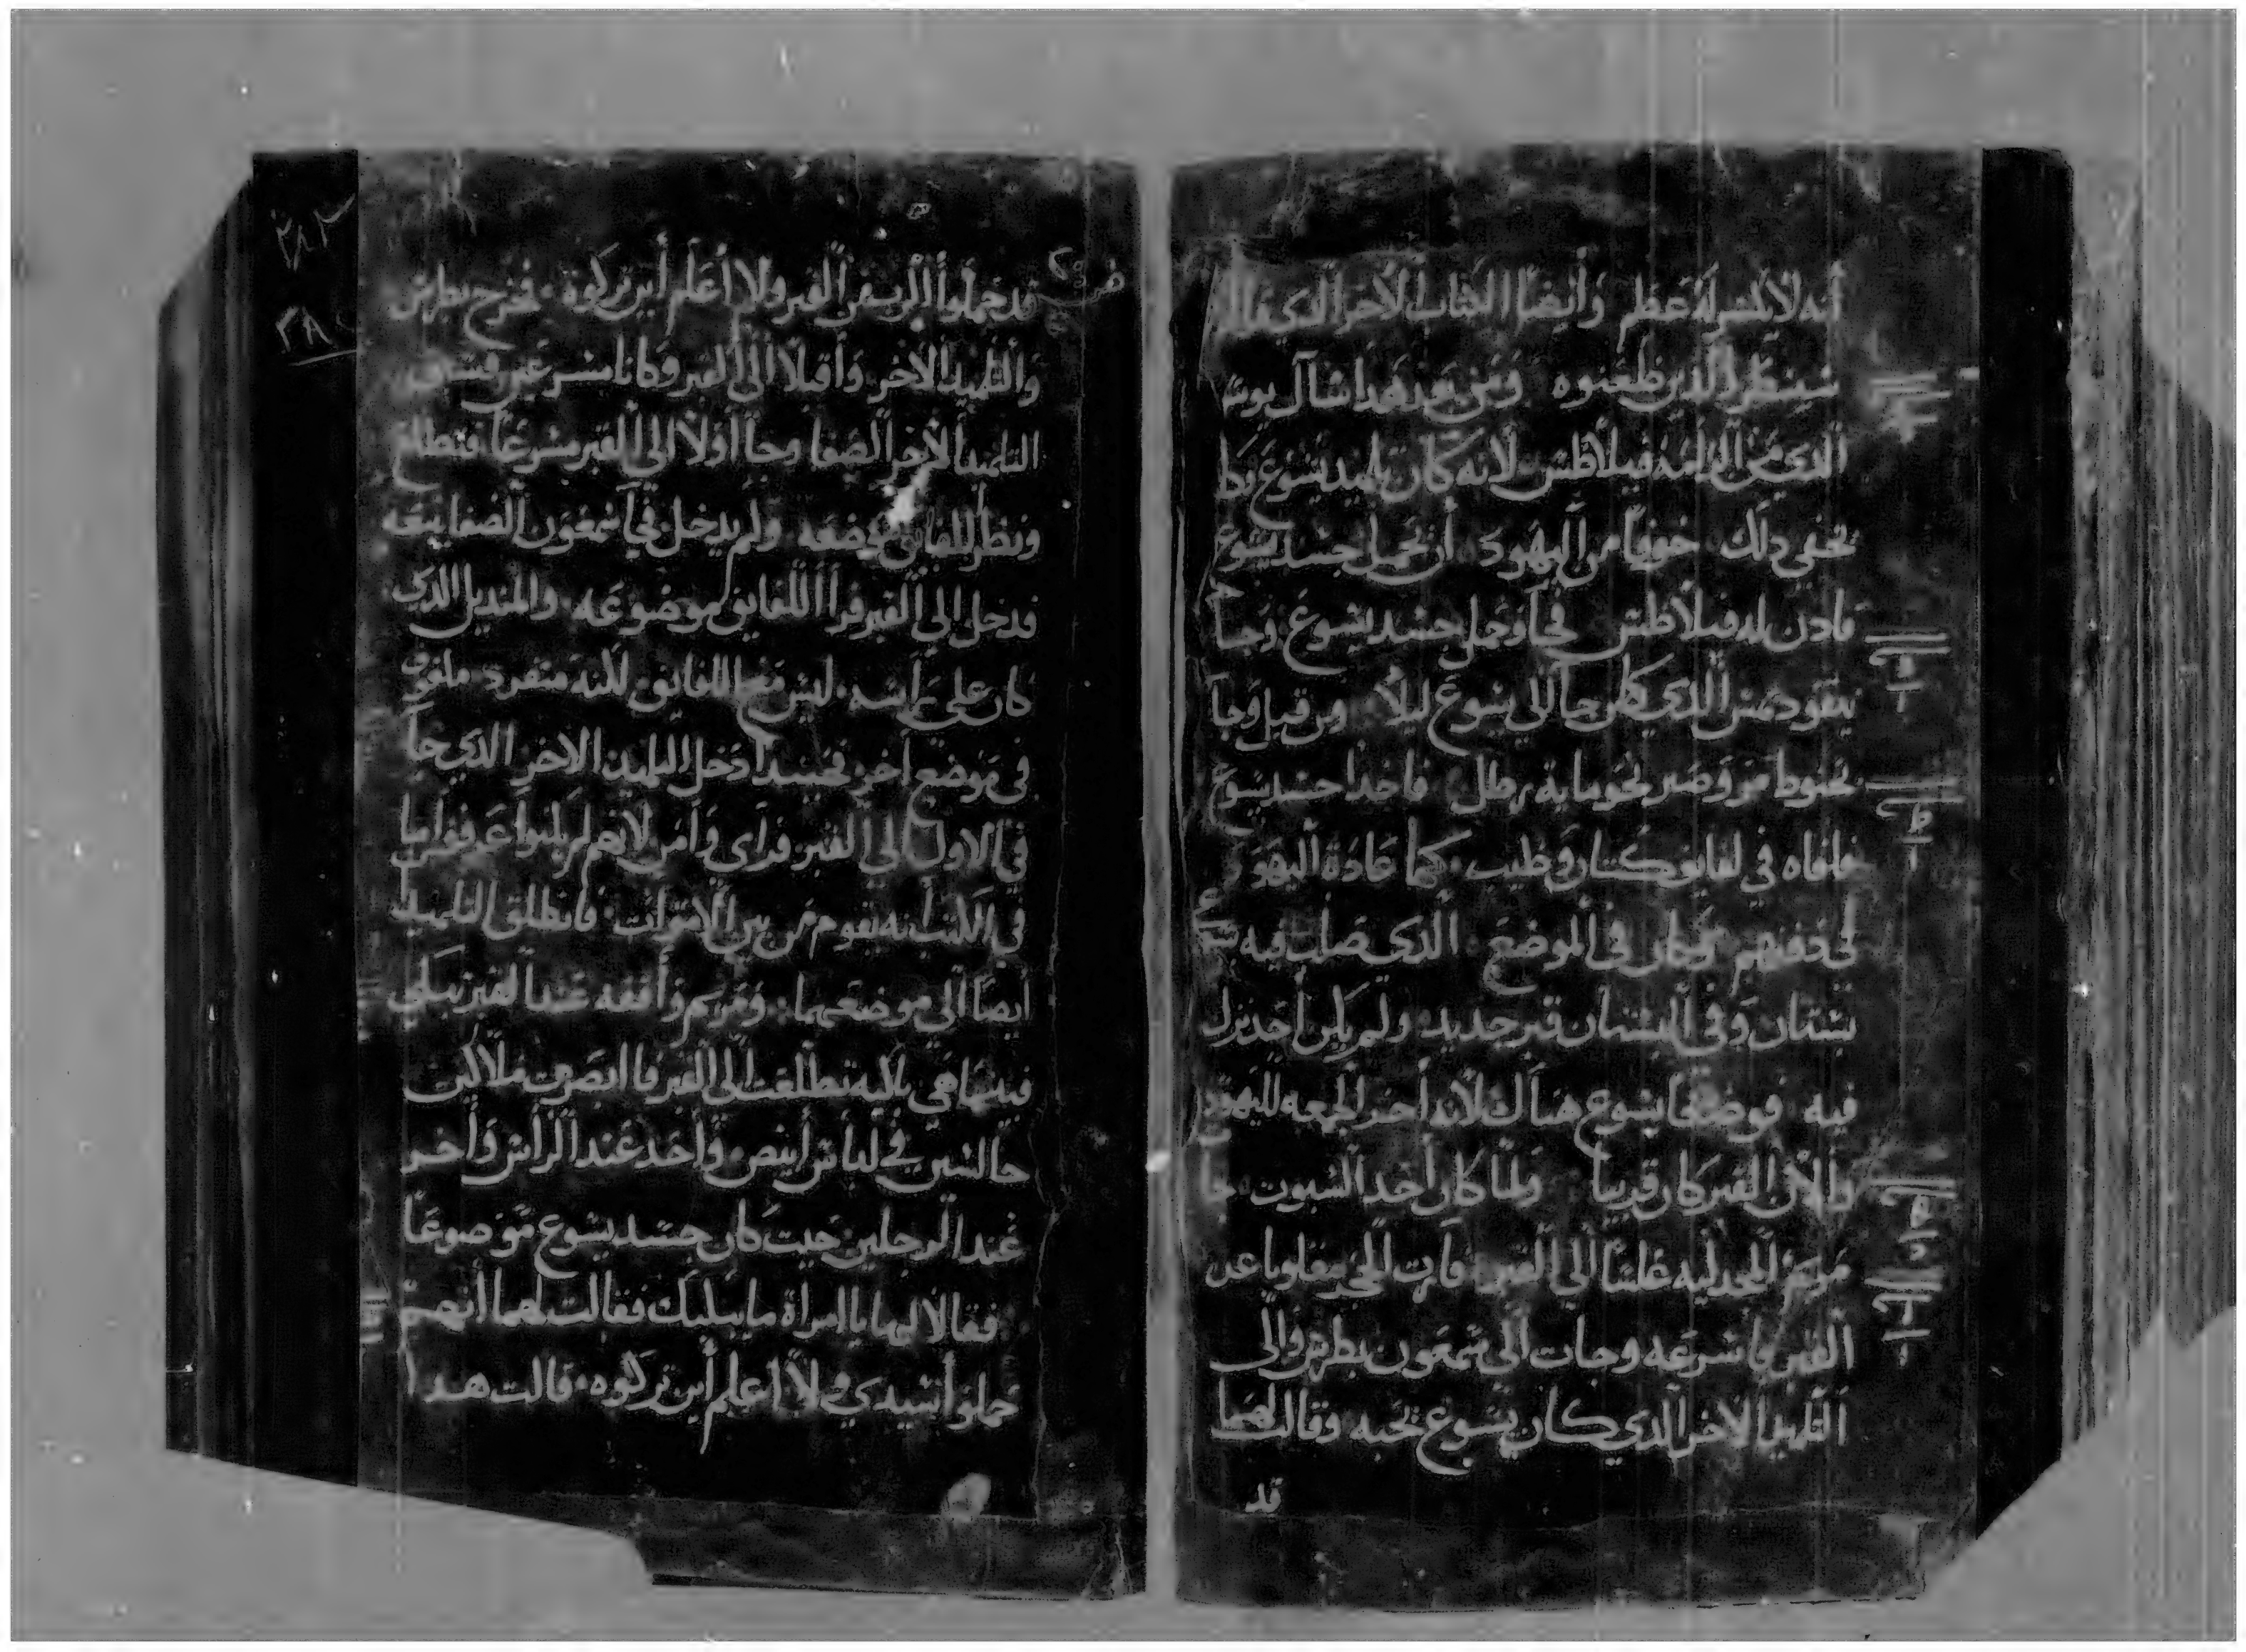 أنه لا يكسر له عظم وأيضا الكتاب الآخر الذي قال
سينظر الذين طعنوه ومن بعد هدا سال يوسف
الذي من الرامه فيلاطس لانه كان تلميد يسوع وكان
يخفي دلك خوفا من اليهود أن يحمل جسد يسوع
فادن له فيلاطس فجا وحمل جسد يسوع وجا
نيقوديمس الذي كان جا الي يسوع ليلا من قبل وجا
بحنوط مر وصبر نحو مايه رطل فاخدا جسد يسوع
فلفاه في لفايف كتان وطيب كما عادة اليهود
في دفنهم وكان في الموضع الذي صلب فيه
بستان وفي البستان قبر جديد ولم يكن أحد نزل
فيه فوضعا يسوع هناك لأنه أخر الجمعه لليهود
ولأن القبر كان قريبا ولما كان أحد السبوت جا
مريم المجدليه غلسا الي القبر فرات الحجر مقلوبا عن
القبر فاسرعه وجات الى شمعون بطرس والى
التلميد الاخر الدي كان يسوع يحبه وقالت لهما
قد
قد حملوا الرب من القبر ولا أعلم أين تركوه فخرج بطرس
والتلميد الآخر وأقبلا الى القبر وكانا مسرعين فسبق
التلميد الآخر الصفا وجا أولا الى القبر مسرعا فتطلع
ونظر اللفايف موضعه ولم يدخل فجا شمعون الصفا يتبعه
فدخل الي القبر فرأا اللفايف موضوعه والمنديل الدي
كان على رأسه ليس مع اللفايف لكنه منفرد ملفوف
في موضع اخر فحينيد دخل التلميد الاخر الدي جا
في الاول الي القبر فرآى وآمن لانهم لم يكونوا عرفوا ما
في الكتب أنه يقوم من بين الاموات فانطلق التلميدا
أيضا الى موضعهما ومريم واقفه عند القبر تبكي
فبينما هي باكيه تطلعت الى القبر فابصرت ملاكين
جالسين في لباس أبيض واحد عند الرأس وأخر
عند الرجلين حيت كان جسد يسوع موضوعا
فقالا لها يا امراة ما يبكيك فقالت لهما أنهم
حملوا سيدي ولا اعلم أين تركوه قالت هدا